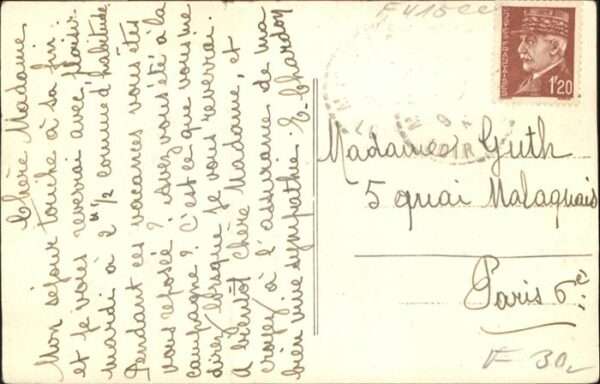 Chère Madame,
Mon séjour touche à sa fin.
et je vous reverrai avec plaisir
mardi à 2 h 1/2 comme d'habitude
Pendant ces vacances vous êtes
vous reposée ? Avez vous été à la
campagne ? C'est ce que vous me
direz lorsque je vous reverrai.
A bientôt chère Madame, et
croyez à l'assurance de ma
bien vive sympathie. E. Chardon
F 415
POSTES FRANÇAISES
1f20
Madame Guth
5 quai Malaquais
Paris 6e
F 30